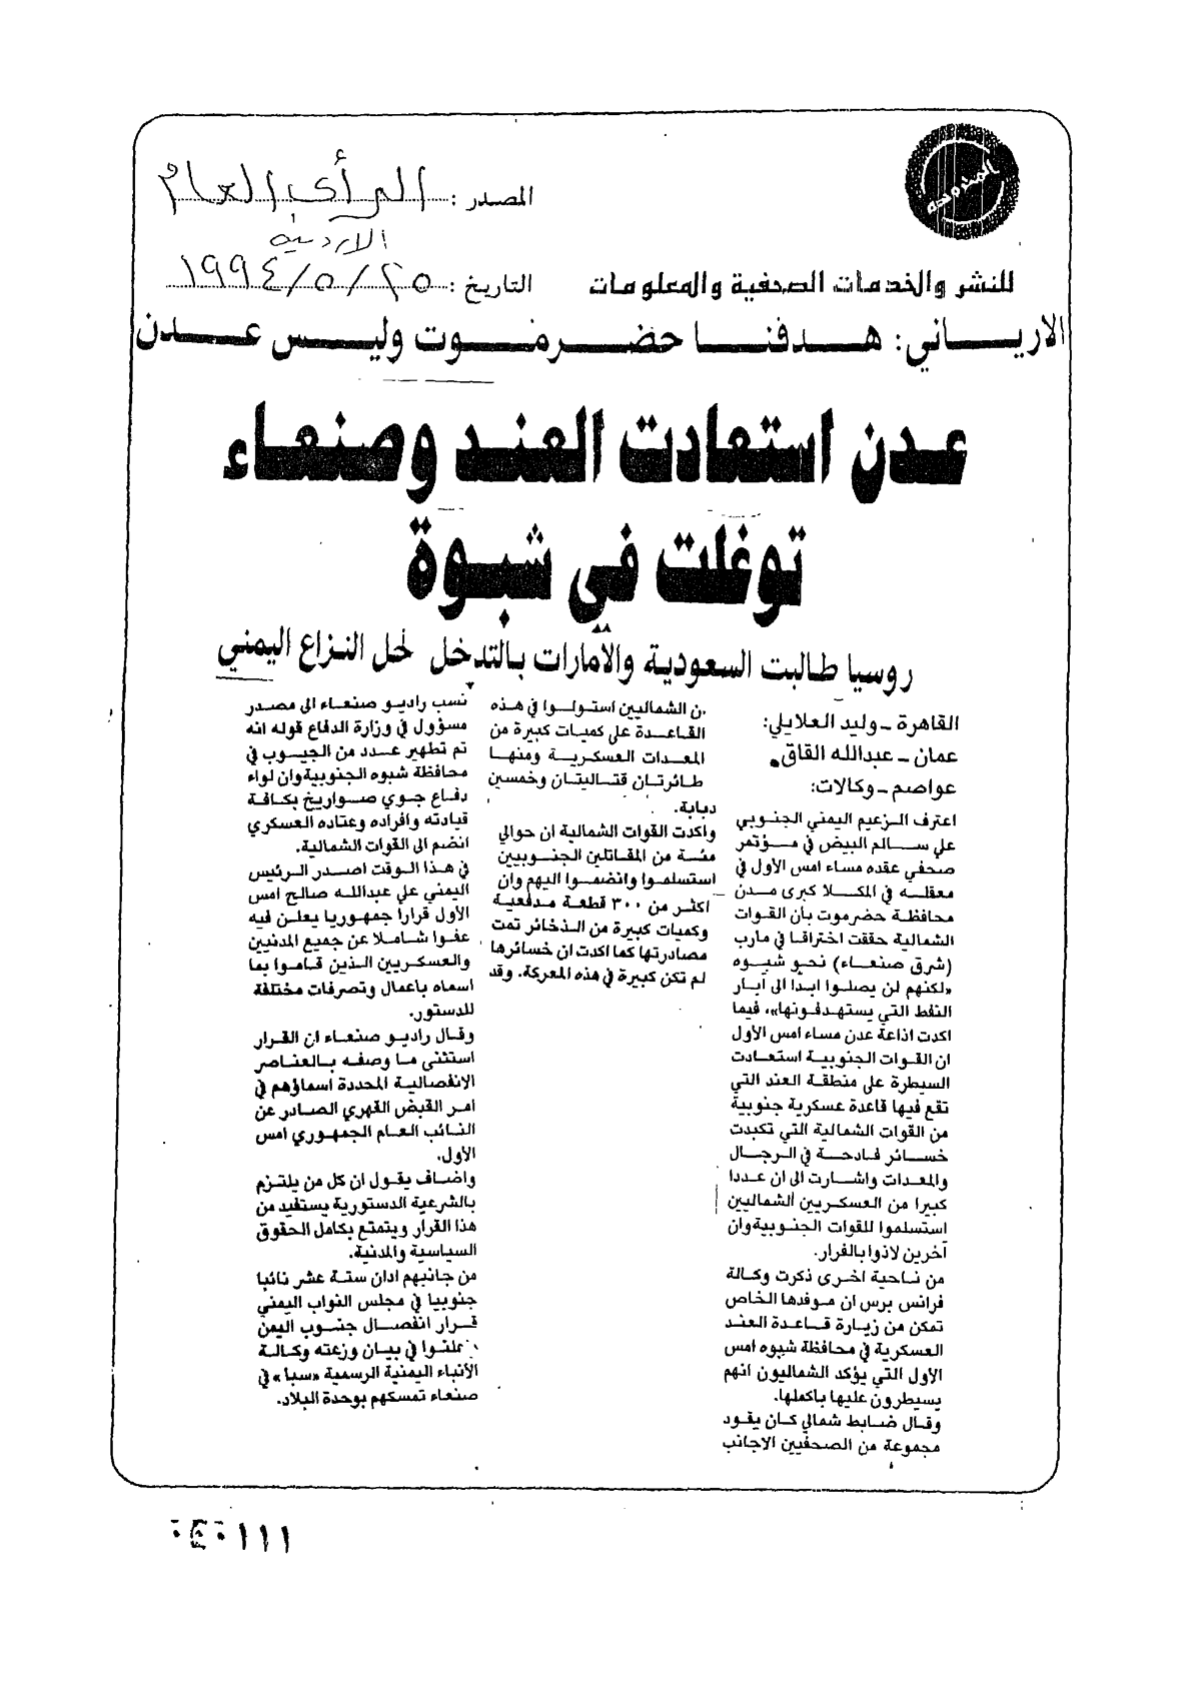 المصدر: الرأي العام
الاردنية
للنشر والخدمات الصحفية والمعلومات
التاريخ: ٢٥/٥/١٩٩٤
الارياني: هدفنا حضرموت وليس عدن
عدن استعادت العند وصنعاء
توغلت في شبوة
روسيا طالبت السعودية والأمارات بالتدخل لحل النزاع اليمني
القاهرة - وليد العلايلي:
عمان - عبدالله القاق
عواصم - وكالات:
اعترف الزعيم اليمني الجنوبي
علي سالم البيض في مؤتمر
صحفي عقده مساء امس الأول في
معقله في المكلا كبرى مدن
محافظة حضرموت بأن القوات
الشمالية حققت اختراقا في مارب
(شرق صنعاء) نحو شبوه
«لكنهم لن يصلوا ابدا الى آبار
النفط التي يستهدفونها»، فيما
اكدت اذاعة عدن مساء امس الأول
ان القوات الجنوبية استعادت
السيطرة على منطقة العند التي
تقع فيها قاعدة عسكرية جنوبية
من القوات الشمالية التي تكبدت
خسائر فادحة في الرجال
والمعدات واشارت الى ان عددا
كبيرا من العسكريين الشماليين
استسلموا للقوات الجنوبية وان
آخرين لاذوا بالفرار.
من ناحية اخرى ذكرت وكالة
فرانس برس ان موفدها الخاص
تمكن من زيارة قاعدة العند
العسكرية في محافظة شبوه امس
الأول التي يؤكد الشماليون انهم
يسيطرون عليها باكملها.
وقال ضابط شمالي كان يقود
مجموعة من الصحفيين الاجانب
ن الشماليين استولوا في هذه
القاعدة على كميات كبيرة من
المعدات العسكرية ومنها
طائرتان قتاليتان وخمسين
دبابة.
واكدت القوات الشمالية ان حوالي
مئة من المقاتلين الجنوبيين
استسلموا وانضموا اليهم وان
اكثر من ٣٠٠ قطعة مدفعية
وكميات كبيرة من الذخائر تمت
مصادرتها كما اكدت ان خسائرها
لم تكن كبيرة في هذه المعركة. وقد
نسب راديو صنعاء الى مصدر
مسؤول في وزارة الدفاع قوله انه
تم تطهير عدد من الجيوب في
محافظة شبوه الجنوبية وان لواء
دفاع جوي صواريخ بكافة
قيادته وافراده وعتاده العسكري
انضم الى القوات الشمالية.
في هذا الوقت اصدر الرئيس
اليمني علي عبدالله صالح امس
الأول قرارا جمهوريا يعلن فيه
عفوا شاملا عن جميع المدنيين
والعسكريين الذين قاموا بما
اسماه باعمال وتصرفات مختلفة
للدستور.
وقال راديو صنعاء ان القرار
استثنى ما وصفه بالعناصر
الانفصالية المحددة اسماؤهم في
امر القبض القهري الصادر عن
النائب العام الجمهوري امس
الأول.
واضاف يقول ان كل من يلتزم
بالشرعية الدستورية يستفيد من
هذا القرار ويتمتع بكامل الحقوق
السياسية والمدنية.
من جانبهم ادان ستة عشر نائبا
جنوبيا في مجلس النواب اليمني
قرار انفصال جنوب اليمن
علنوا في بيان وزعته وكالة
الأنباء اليمنية الرسمية «سبا» في
صنعاء تمسكهم بوحدة البلاد.